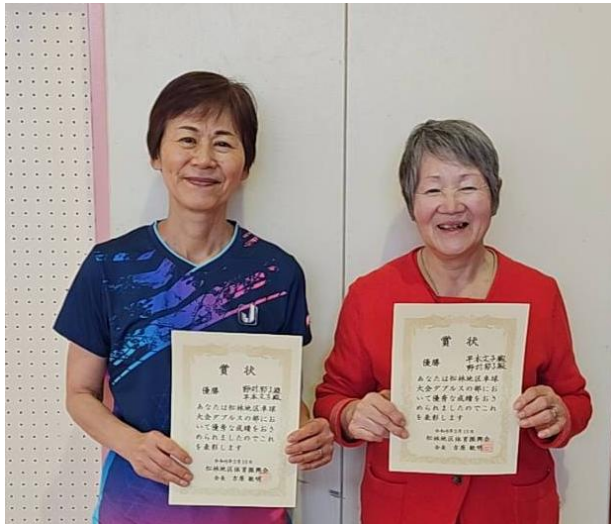 賞状
優勝
あなたは松林地区卓球
大会ダブルスの部にお
いて優秀な成績をおさ
められましたのでこれ
を表彰します
松林地区体育振興会
会長 吉原 敏明
賞状
優勝
あなたは松林地区卓球
大会ダブルスの部にお
いて優秀な成績をおさ
められましたのでこれ
を表彰します
松林地区体育振興会
会長 吉原 敏明